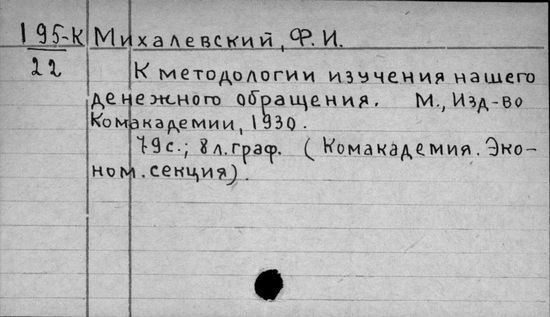 195-К Михалевский, Ф.И.
22 К методологии изучения нашего
денежного обращения. М., Изд-во
Комакадемии, 1930.
79с.; 8л.граф. (Комакадемия. Эко-
ном.секция).